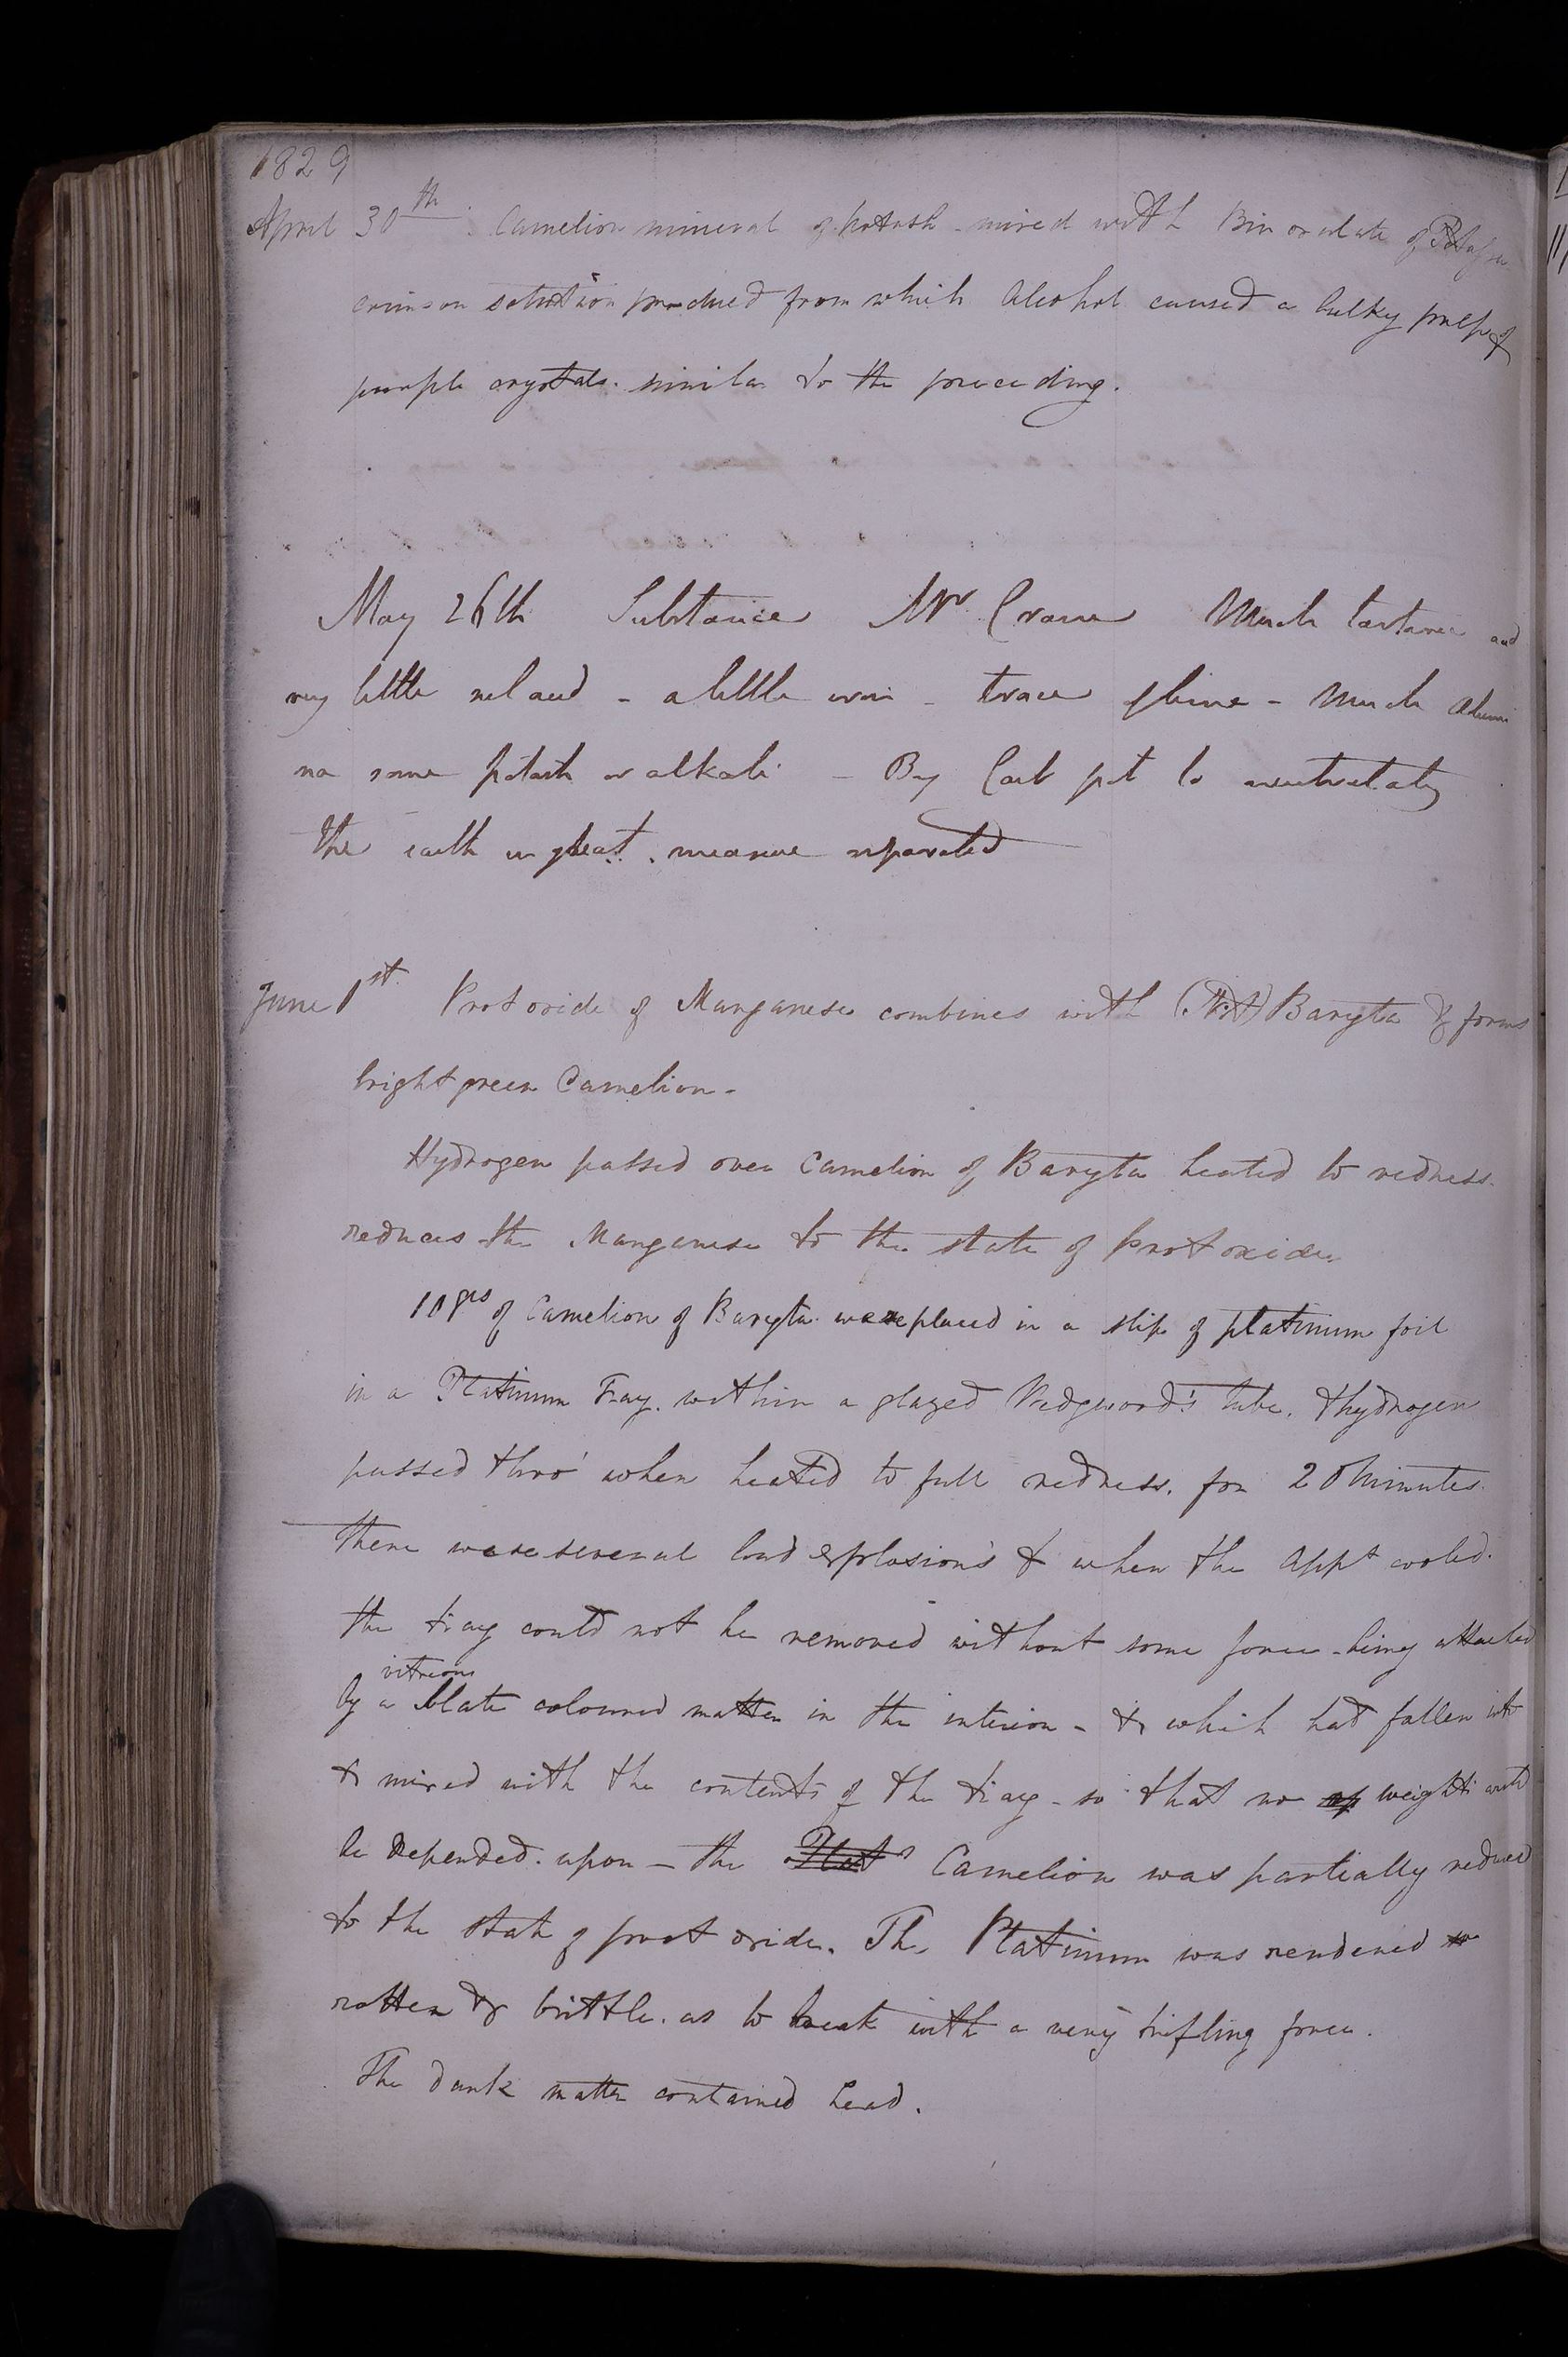 1829
April 30th. Camelion mineral of potash mixed with Bin oxalate of Potassa
crimson solution produced from which Alcohol caused a bulky precip of
purple crystals. similar to the preceding.
May 26th Substance Mr Crane Much tartaric and
very little sul acid - a little iron - trace of lime - Much Alumi
na some potash or alkali - By Carb pot to neutrality
the earth in great measure separated
June 1st. Protoxide of Manganese combines with (Nit) Baryta & forms
bright green Camelion -
Hydrogen passed over Camelion of Baryta heated to redness.
reduces the Manganese to the state of Protoxide.
10 grs of Camelion of Baryta were placed in a slip of platinum foil
in a Platinum Tray. within a glazed Wedgwood's tube. & hydrogen
passed thro' when heated to full redness. for 20 minutes.
There were several loud explosions & when the appt cooled.
the tray could not be removed without some force - being attached
vitreous
by a slate coloured matter in the interior - & which had fallen into
& mixed with the contents of the tray - so that no weights could
be depended upon - the Camelion was partially reduced
to the state of protoxide. The Platinum was rendered so
rotten & brittle. as to break with a very trifling force.
The dark matter contained lead.